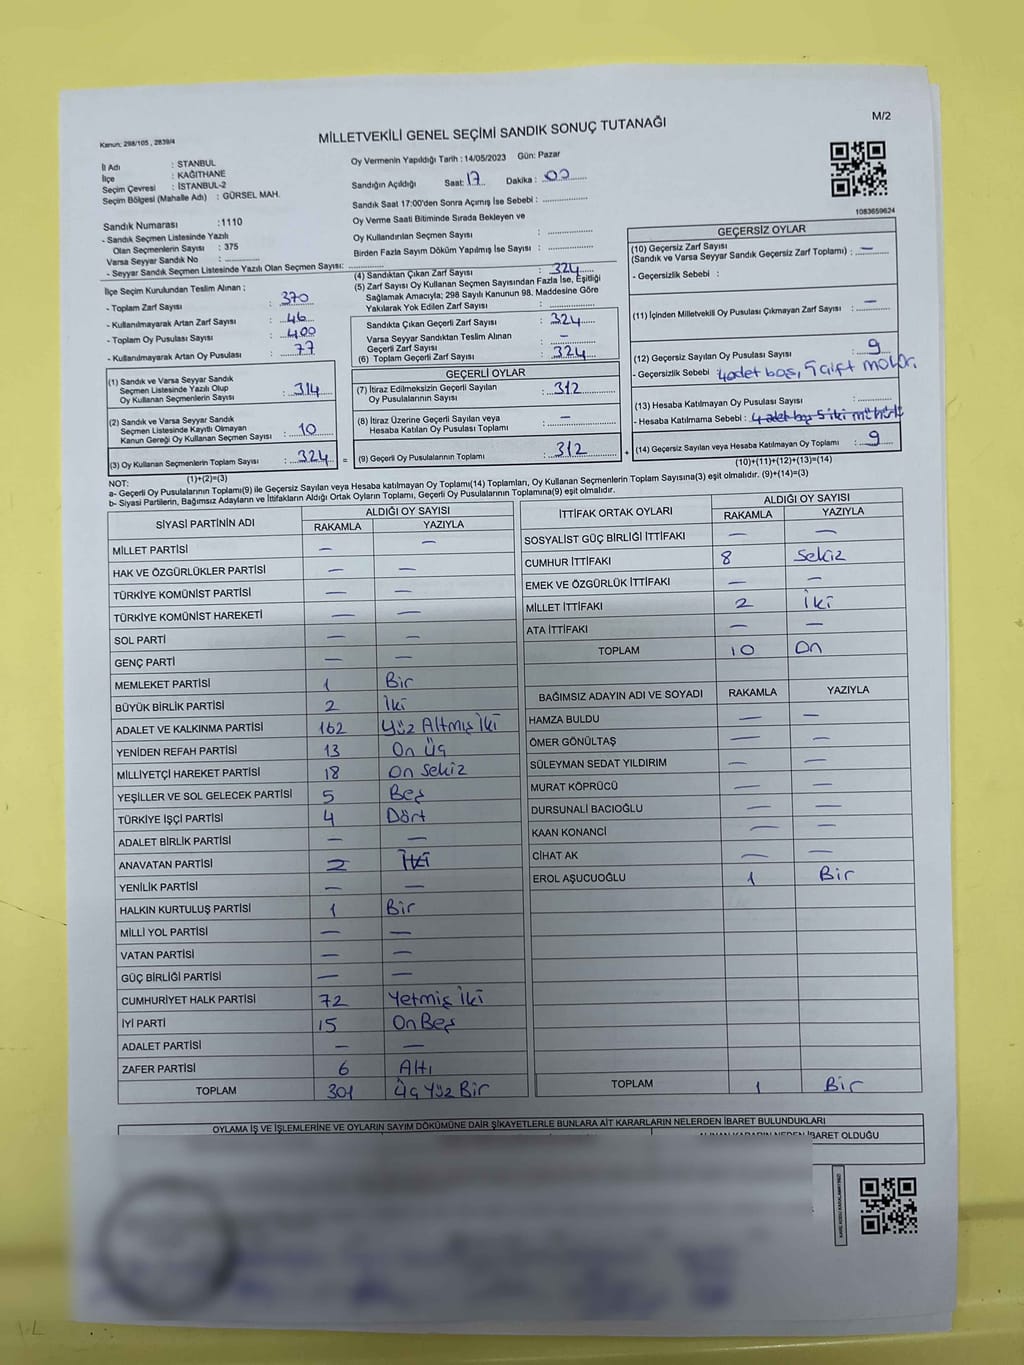 M/2
Kanun: 298/105 , 2839/4
MİLLETVEKİLİ GENEL SEÇİMİ SANDIK SONUÇ TUTANAĞI
İl Adı : İSTANBUL
İlçe : KAĞITHANE
Seçim Çevresi : İSTANBUL-2
Seçim Bölgesi (Mahalle Adı) : GÜRSEL MAH.
Sandık Numarası : 1110
- Sandık Seçmen Listesinde Yazılı
Olan Seçmenlerin Sayısı : 375
Varsa Seyyar Sandık No :
- Seyyar Sandık Seçmen Listesinde Yazılı Olan Seçmen Sayısı:
Oy Vermenin Yapıldığı Tarih : 14/05/2023 Gün: Pazar
Sandığın Açıldığı Saat: 17 Dakika : 00
Sandık Saat 17:00'den Sonra Açımış İse Sebebi :
Oy Verme Saati Bitiminde Sırada Bekleyen ve
Oy Kullandırılan Seçmen Sayısı :
Birden Fazla Sayım Döküm Yapılmış İse Sayısı :
1083659624
İlçe Seçim Kurulundan Teslim Alınan ;
- Toplam Zarf Sayısı : 370
- Kullanılmayarak Artan Zarf Sayısı : 46
- Toplam Oy Pusulası Sayısı : 400
- Kullanılmayarak Artan Oy Pusulası : 77
(1) Sandık ve Varsa Seyyar Sandık
Seçmen Listesinde Yazılı Olup
Oy Kullanan Seçmenlerin Sayısı : 314
(2) Sandık ve Varsa Seyyar Sandık
Seçmen Listesinde Kayıtlı Olmayan
Kanun Gereği Oy Kullanan Seçmen Sayısı : 10
(3) Oy Kullanan Seçmenlerin Toplam Sayısı : 324
(1)+(2)=(3)
(4) Sandıktan Çıkan Zarf Sayısı : 324
(5) Zarf Sayısı Oy Kullanan Seçmen Sayısından Fazla İse, Eşitliği
Sağlamak Amacıyla; 298 Sayılı Kanunun 98. Maddesine Göre
Yakılarak Yok Edilen Zarf Sayısı :
Sandıkta Çıkan Geçerli Zarf Sayısı : 324
Varsa Seyyar Sandıktan Teslim Alınan
Geçerli Zarf Sayısı : —
(6) Toplam Geçerli Zarf Sayısı : 324
GEÇERLİ OYLAR
(7) İtiraz Edilmeksizin Geçerli Sayılan
Oy Pusulalarının Sayısı : 312
(8) İtiraz Üzerine Geçerli Sayılan veya
Hesaba Katılan Oy Pusulası Toplamı : —
= (9) Geçerli Oy Pusulalarının Toplamı : 312
GEÇERSİZ OYLAR
(10) Geçersiz Zarf Sayısı
(Sandık ve Varsa Seyyar Sandık Geçersiz Zarf Toplamı) : —
- Geçersizlik Sebebi :
(11) İçinden Milletvekili Oy Pusulası Çıkmayan Zarf Sayısı : —
(12) Geçersiz Sayılan Oy Pusulası Sayısı : 9
- Geçersizlik Sebebi : 4 adet boş, 5 çift mühür.
(13) Hesaba Katılmayan Oy Pusulası Sayısı :
- Hesaba Katılmama Sebebi : 4 adet boş 5 iki mühür
+ (14) Geçersiz Sayılan veya Hesaba Katılmayan Oy Toplamı : 9
(10)+(11)+(12)+(13)=(14)
NOT:
a- Geçerli Oy Pusulalarının Toplamı(9) ile Geçersiz Sayılan veya Hesaba Katılmayan Oy Toplamı(14) Toplamları, Oy Kullanan Seçmenlerin Toplam Sayısına(3) eşit olmalıdır. (9)+(14)=(3)
b- Siyasi Partilerin, Bağımsız Adayların ve İttifakların Aldığı Ortak Oyların Toplamı, Geçerli Oy Pusulalarının Toplamına(9) eşit olmalıdır.
SİYASİ PARTİNİN ADI ALDIĞI OY SAYISI
RAKAMLA YAZIYLA
MİLLET PARTİSİ — —
HAK VE ÖZGÜRLÜKLER PARTİSİ — —
TÜRKİYE KOMÜNİST PARTİSİ — —
TÜRKİYE KOMÜNİST HAREKETİ — —
SOL PARTİ — —
GENÇ PARTİ — —
MEMLEKET PARTİSİ 1 Bir
BÜYÜK BİRLİK PARTİSİ 2 İki
ADALET VE KALKINMA PARTİSİ 162 Yüz Altmış İki
YENİDEN REFAH PARTİSİ 13 On Üç
MİLLİYETÇİ HAREKET PARTİSİ 18 On Sekiz
YEŞİLLER VE SOL GELECEK PARTİSİ 5 Beş
TÜRKİYE İŞÇİ PARTİSİ 4 Dört
ADALET BİRLİK PARTİSİ — —
ANAVATAN PARTİSİ 2 İki
YENİLİK PARTİSİ — —
HALKIN KURTULUŞ PARTİSİ 1 Bir
MİLLİ YOL PARTİSİ — —
VATAN PARTİSİ — —
GÜÇ BİRLİĞİ PARTİSİ — —
CUMHURİYET HALK PARTİSİ 72 Yetmiş İki
İYİ PARTİ 15 On Beş
ADALET PARTİSİ — —
ZAFER PARTİSİ 6 Altı
TOPLAM 301 Üç Yüz Bir
İTTİFAK ORTAK OYLARI ALDIĞI OY SAYISI
RAKAMLA YAZIYLA
SOSYALİST GÜÇ BİRLİĞİ İTTİFAKI — —
CUMHUR İTTİFAKI 8 Sekiz
EMEK VE ÖZGÜRLÜK İTTİFAKI — —
MİLLET İTTİFAKI 2 İki
ATA İTTİFAKI — —
TOPLAM 10 On
BAĞIMSIZ ADAYIN ADI VE SOYADI RAKAMLA YAZIYLA
HAMZA BULDU — —
ÖMER GÖNÜLTAŞ — —
SÜLEYMAN SEDAT YILDIRIM — —
MURAT KÖPRÜCÜ — —
DURSUNALİ BACIOĞLU — —
KAAN KONANCİ — —
CİHAT AK — —
EROL AŞUCUOĞLU 1 Bir
TOPLAM 1 Bir
OYLAMA İŞ VE İŞLEMLERİNE VE OYLARIN SAYIM DÖKÜMÜNE DAİR ŞİKAYETLERLE BUNLARA AİT KARARLARIN NELERDEN İBARET BULUNDUKLARI
İBARET OLDUĞU